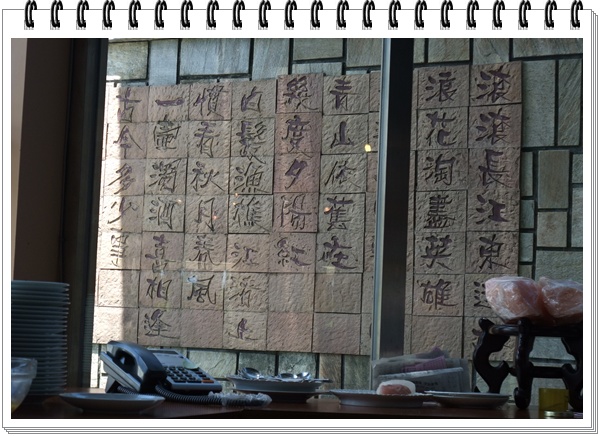 滾滾長江東
浪花淘盡英雄
青山依舊在
幾度夕陽紅
白髮漁樵江渚上
慣看秋月春風
一壺濁酒喜相逢
古今多少事